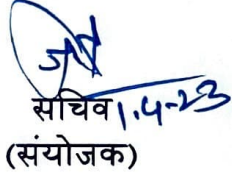 सचिव 1.4-23
(संयोजक)